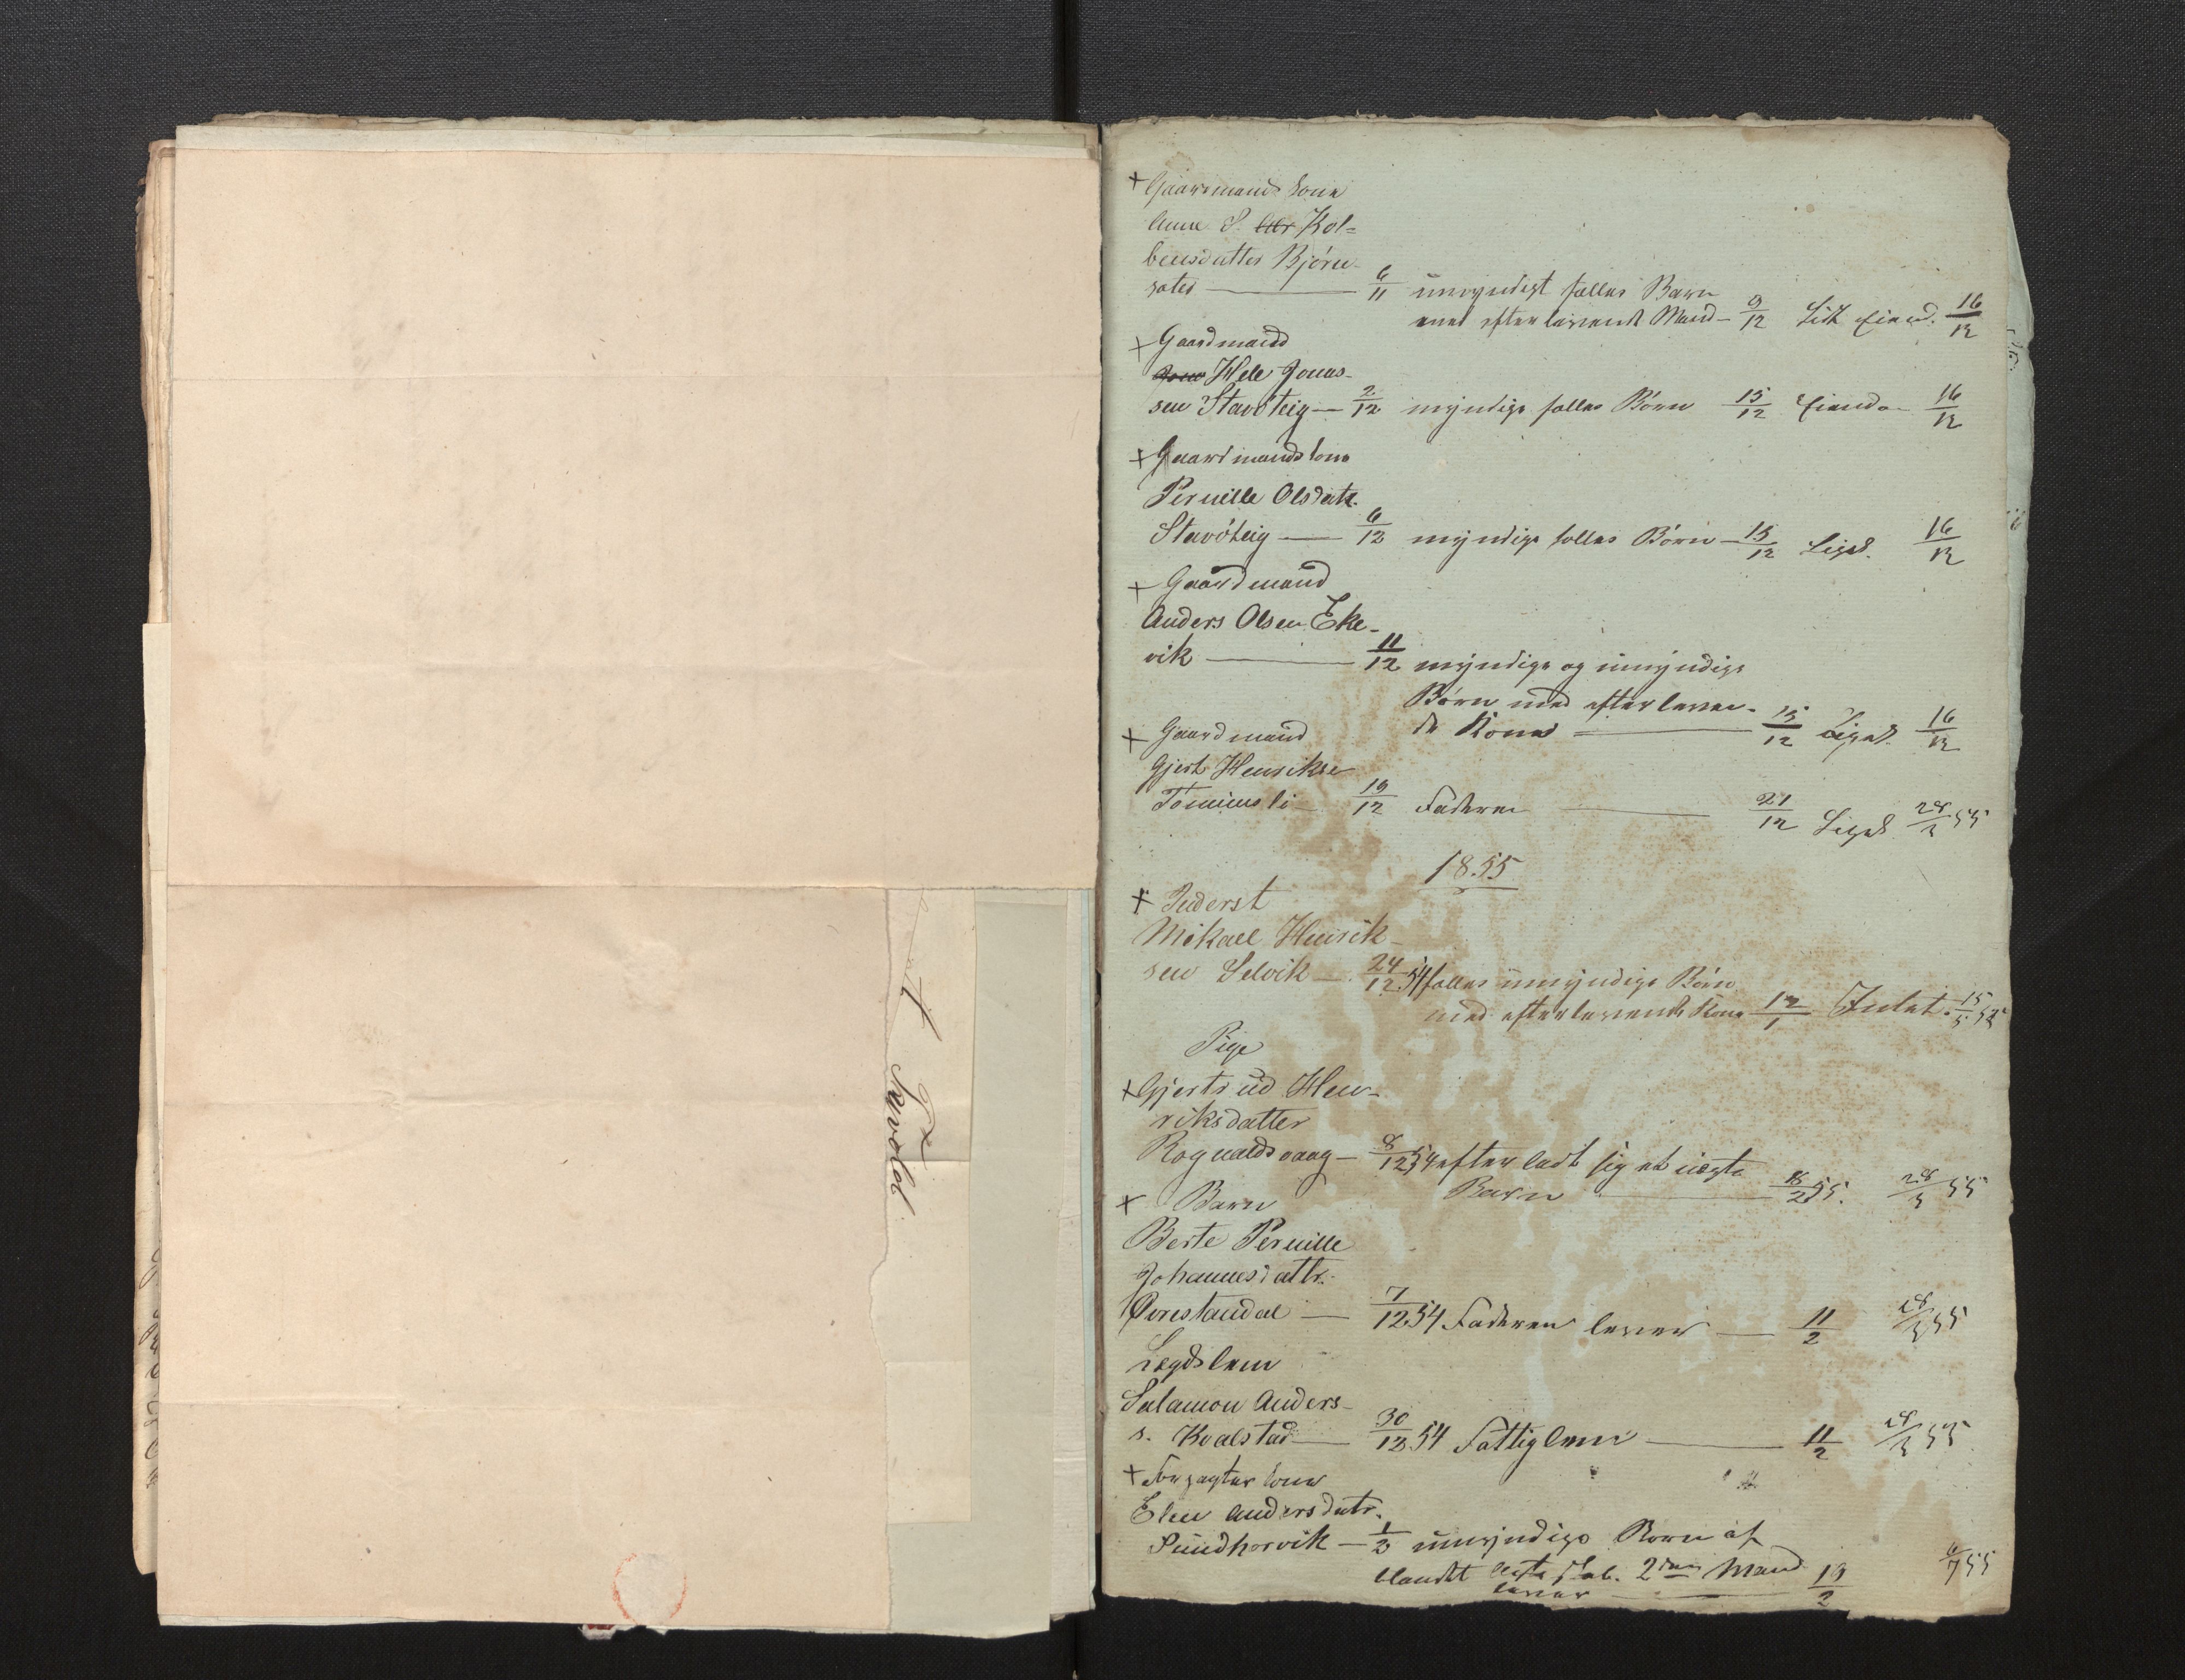 + Gaardmands Kone
Anne S. Kol=
beinsdatter Bjørn
sater — 6/11 umyndigt fælles Barn
med efterlevende Mand — 9/12 16/12
+ Gaardmand
Hele Jonas-
sen Stavøteig — 2/12 myndige fælles Børn 15/12 16/12
+ Gaardmands Kone
Pernille Olsdatr.
Stavøteig — 6/12 myndige fælles Børn — 15/12 Ligel. 16/12
+ Gaardmand
Anders Olsen Eke-
vik — 11/12 myndige og umyndige
Børn med efterleven-
de Kone — 15/12 Ligel. 16/12
+ Gaardmand
Gjert Henrikse
— 19/12 Faderen — 21/12 Ligel. 28/3 55
1855
+ Inderst
Mikael Henrik-
sen Selvik — 24/12 54 fælles umyndige Børn
med efterlevende Kone 12/1
Pige
+ Gjertrud Hen-
riksdatter
Rognaldsvaag — 8/12 54 efterladt sig et uægte
Barn — 8/2 55. 28/3 55
+ Barn
Berte Pernille
Johannesdattr.
— 7/12 54 Faderen lever — 11/2 28/3 55
Lægdslem
Salamon Anders-
s. Kvalstad — 30/12 54 Fattiglem — 11/2 28/3 55
+ Kone
Elen Andersdatr.
— 1/2 umyndige Børn af
2den Mand 19/2
lever — 6/7 55
Savold